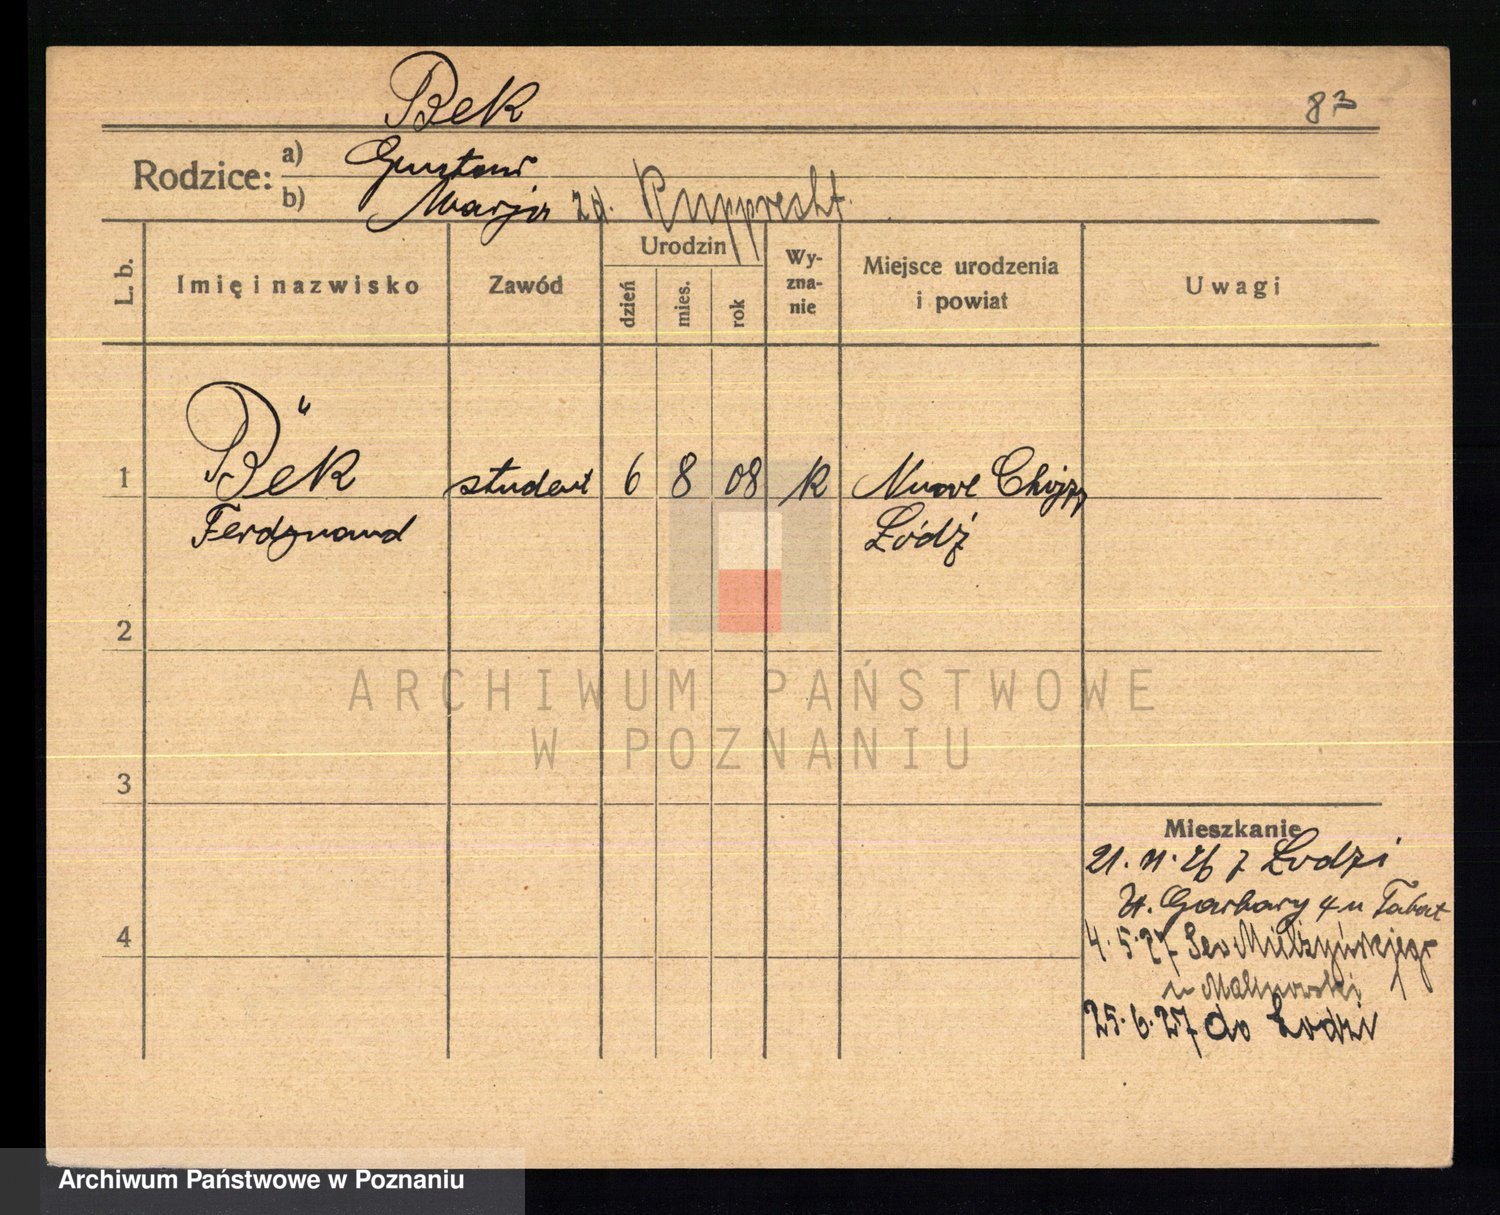 Bek
87
Rodzice: a) Gustaw
b) Marja zd. Rupprecht
L. b.
Imię i nazwisko
Zawód
Urodzin
dzień
mies.
rok
Wy-
zna-
nie
Miejsce urodzenia
i powiat
Uwagi
1 Bek student 6 8 08 k Nowe Chojny
Ferdynand Łódź
2
ARCHIWUM PAŃSTWOWE
W POZNANIU
3
Mieszkanie
21. 11. 26 z Łodzi
Garbary 4 u
4
4. 5. 27 Sew Mielżyńskiego
u Malinowski
25. 6. 27 do Łodzi
Archiwum Państwowe w Poznaniu